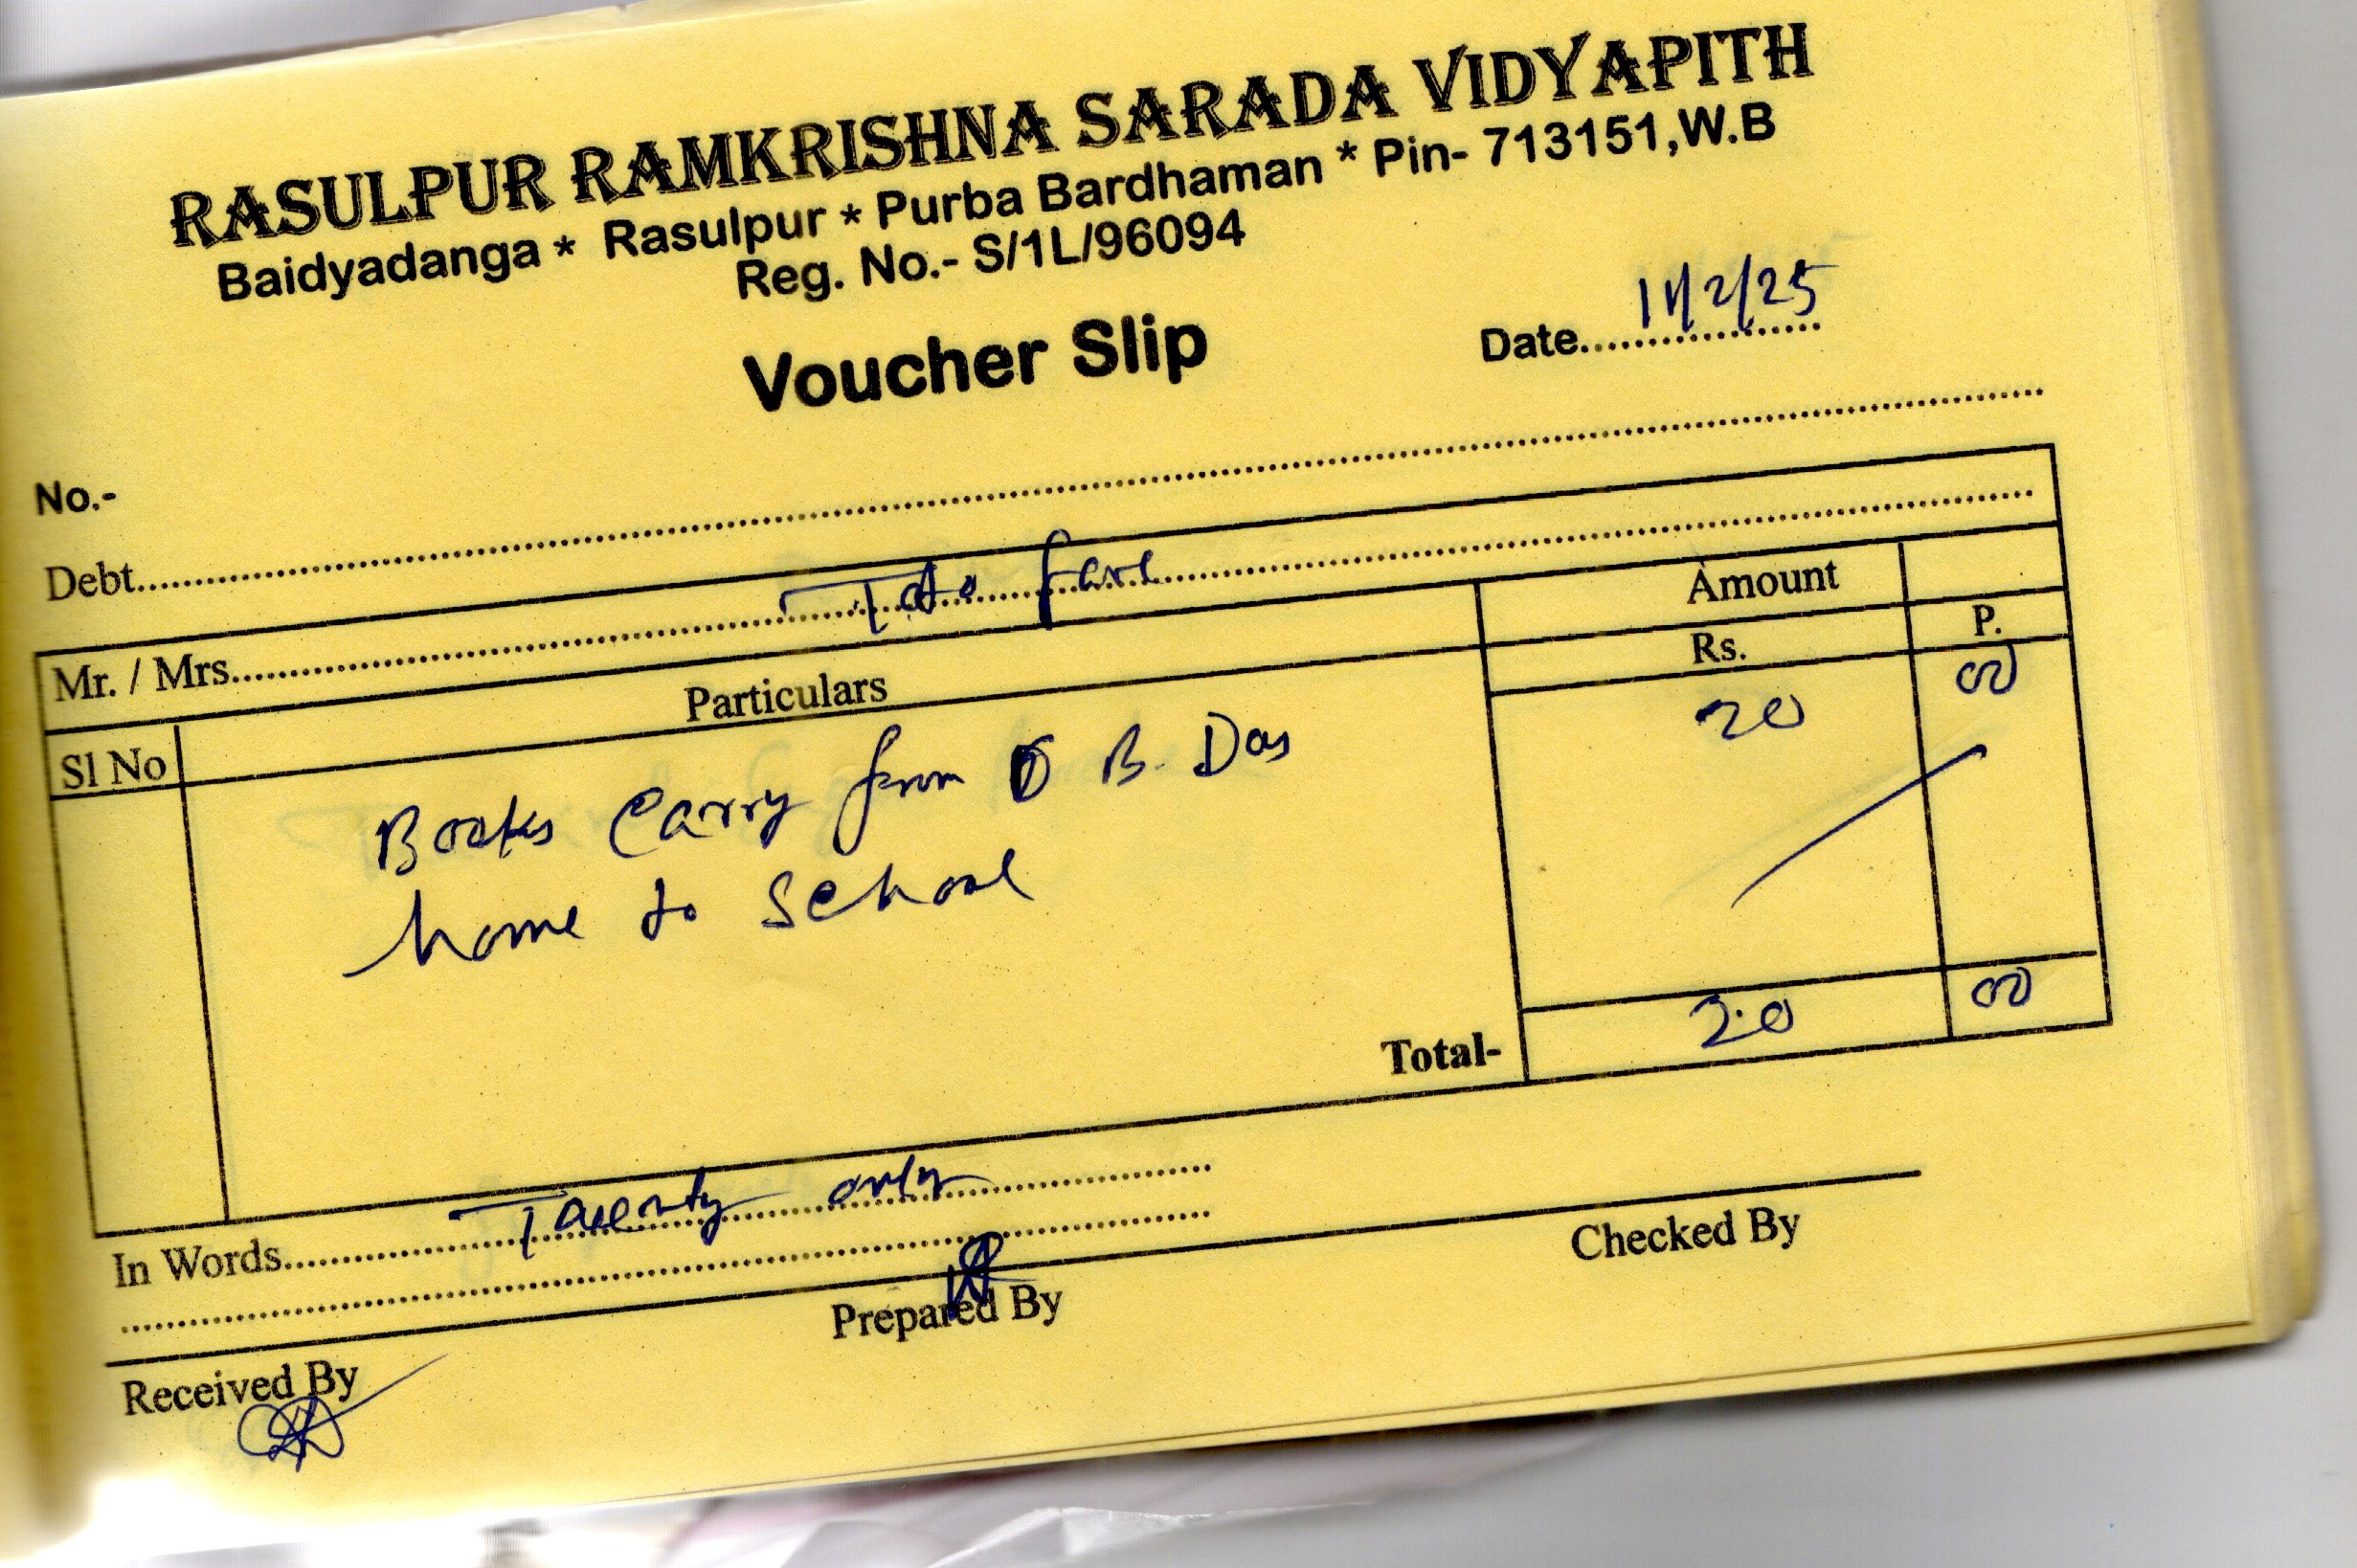 RASULPUR RAMKRISHNA SARADA VIDYAPITH
Baidyadanga * Rasulpur * Purba Bardhaman * Pin- 713151,W.B
Reg. No.- S/1L/96094
Voucher Slip
Date.................. 11/2/25
No.-
Debt..........
Mr. / Mrs.......... Toto fare
Sl No Particulars Amount
Rs. P.
Books Carry from B. Das 20 00
home to School
Total- 20 00
In Words.......... Twenty only
Received By Prepared By Checked By